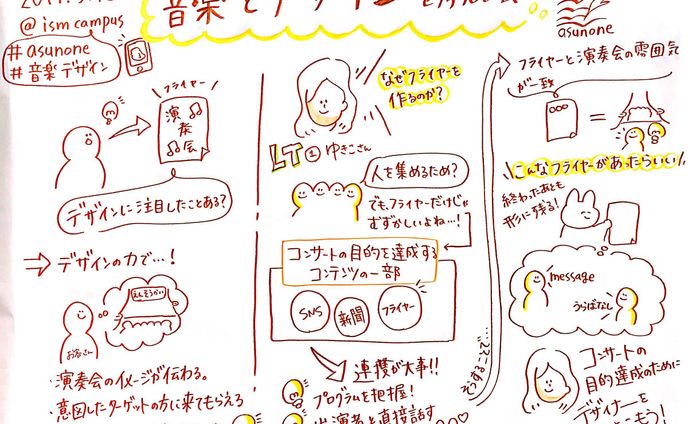 @ism campus
#asunone
#音楽デザイン
音楽とデザイン
asunone
フライヤー
演奏会
デザインに注目したことある?
⇒ デザインの力で…!
えんそうかい
お客さん
・演奏会のイメージが伝わる。
・意図したターゲットの方に来てもらえる
なぜフライヤーを
作るのか?
LT① ゆきこさん
人を集めるため?
でもフライヤーだけじゃ
むずかしいよね…!
コンサートの目的を達成する
コンテンツの一部
SNS
新聞
フライヤー
連携が大事!!
プログラムを把握!
出演者と直接話す
そうすることで…
フライヤーと演奏会の雰囲気
が一致
=
こんなフライヤーがあったらいい
終わったあとも
形に残る!
message
うらばなし
コンサートの
目的達成のために
デザイナーを